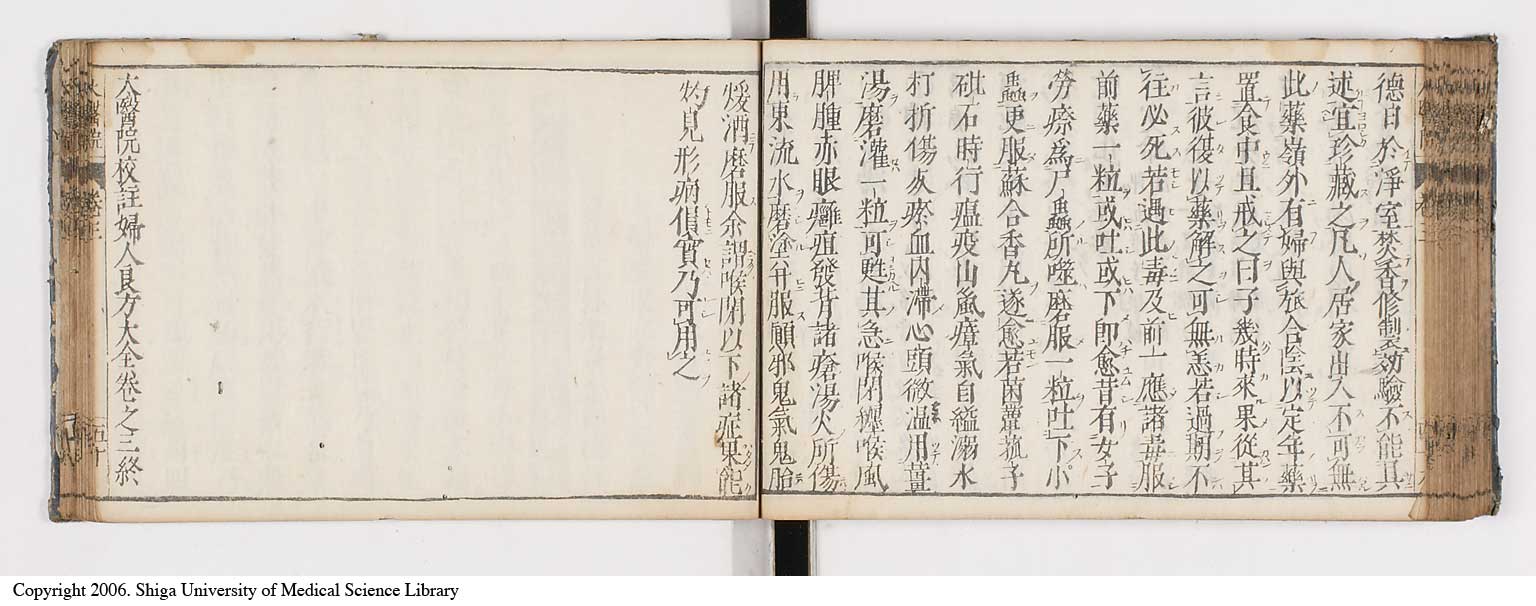 德日於淨室焚香修製効驗不能具
述宜珍藏之凡人居家出入不可無
此藥嶺外有婦與旅合陰以定年藥
置食中且戒之曰子幾時來果從其
言彼復以藥解之可無恙若過期不
往必死若遇此毒及前一應諸毒服
前藥一粒或吐或下即愈昔有女子
勞瘵爲尸蟲所噬磨服一粒吐下小
蟲更服蘇合香丸遂愈若菌蕈菰子
砒石時行瘟疫山嵐瘴氣自縊溺水
打折傷攧瘀血内滯心頭微温用薑
湯磨灌一粒可甦其急喉閉纏喉風
脾腫赤眼癰疽發背諸瘡湯火所傷
用東流水磨塗并服顛邪鬼氣鬼胎
煖酒磨服余謂喉閉以下諸症果能
灼見形病俱實乃可用之
大醫院校註婦人良方大全卷之三終
Copyright 2006. Shiga University of Medical Science Library